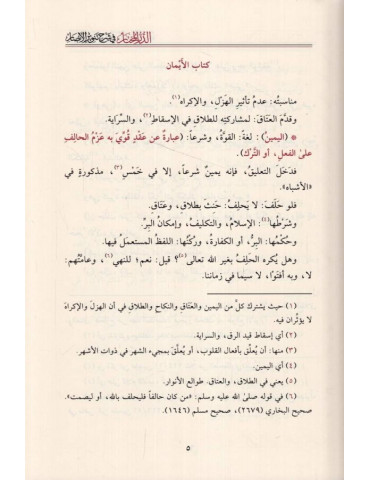 الدر المختار في شرح تنوير الأبصار
كتاب الأَيْمان
مناسبتُه: عدمُ تأثيرِ الهَزْلِ، والإكراه(١).
وقدَّمَ العَتَاقَ: لمشاركتِه للطلاق في الإسقاط(٢)، والسِّرَاية.
* (اليمينُ): لغةً: القوةُ، وشرعاً: (عبارةٌ عن عَقْدٍ قَوِيَ به عَزْمُ الحالِفِ
على الفعلِ، أو التَّرْك).
فدَخَلَ التعليقُ، فإنه يمينٌ شرعاً، إلا في خَمْسٍ(٣)، مذكورةٍ في
«الأشباه».
فلو حَلَفَ: لا يَحلِفُ: حَنِثَ بطلاقٍ، وعَتَاقٍ.
وشَرْطُها(٤): الإسلامُ، والتكليفُ، وإمكانُ البِرِّ.
وحُكْمُها: البِرُّ، أو الكفارةُ. ورُكْنُها: اللفظُ المستعمَلُ فيها.
وهل يُكره الحَلِفُ بغير الله تعالى(٥)؟ قيل: نعم؛ للنهي(٦)، وعامَّتُهم:
لا، وبه أفتَوْا، لا سيما في زماننا.
(١) حيث يشترك كلٌّ من اليمين والعَتَاق والنكاح والطلاق في أن الهزل والإكراه
لا يؤثِّران فيه.
(٢) أي إسقاط قيد الرق، والسراية.
(٣) منها: أن يُعلِّق بأفعال القلوب، أو يُعلِّق بمجيء الشهر في ذوات الأشهر.
(٤) أي اليمين.
(٥) يعني في الطلاق، والعتاق. طوالع الأنوار.
(٦) في قوله صلى الله عليه وسلم: «من كان حالفاً فليحلف بالله، أو ليصمت».
صحيح البخاري (٢٦٧٩)، صحيح مسلم (١٦٤٦).
٥